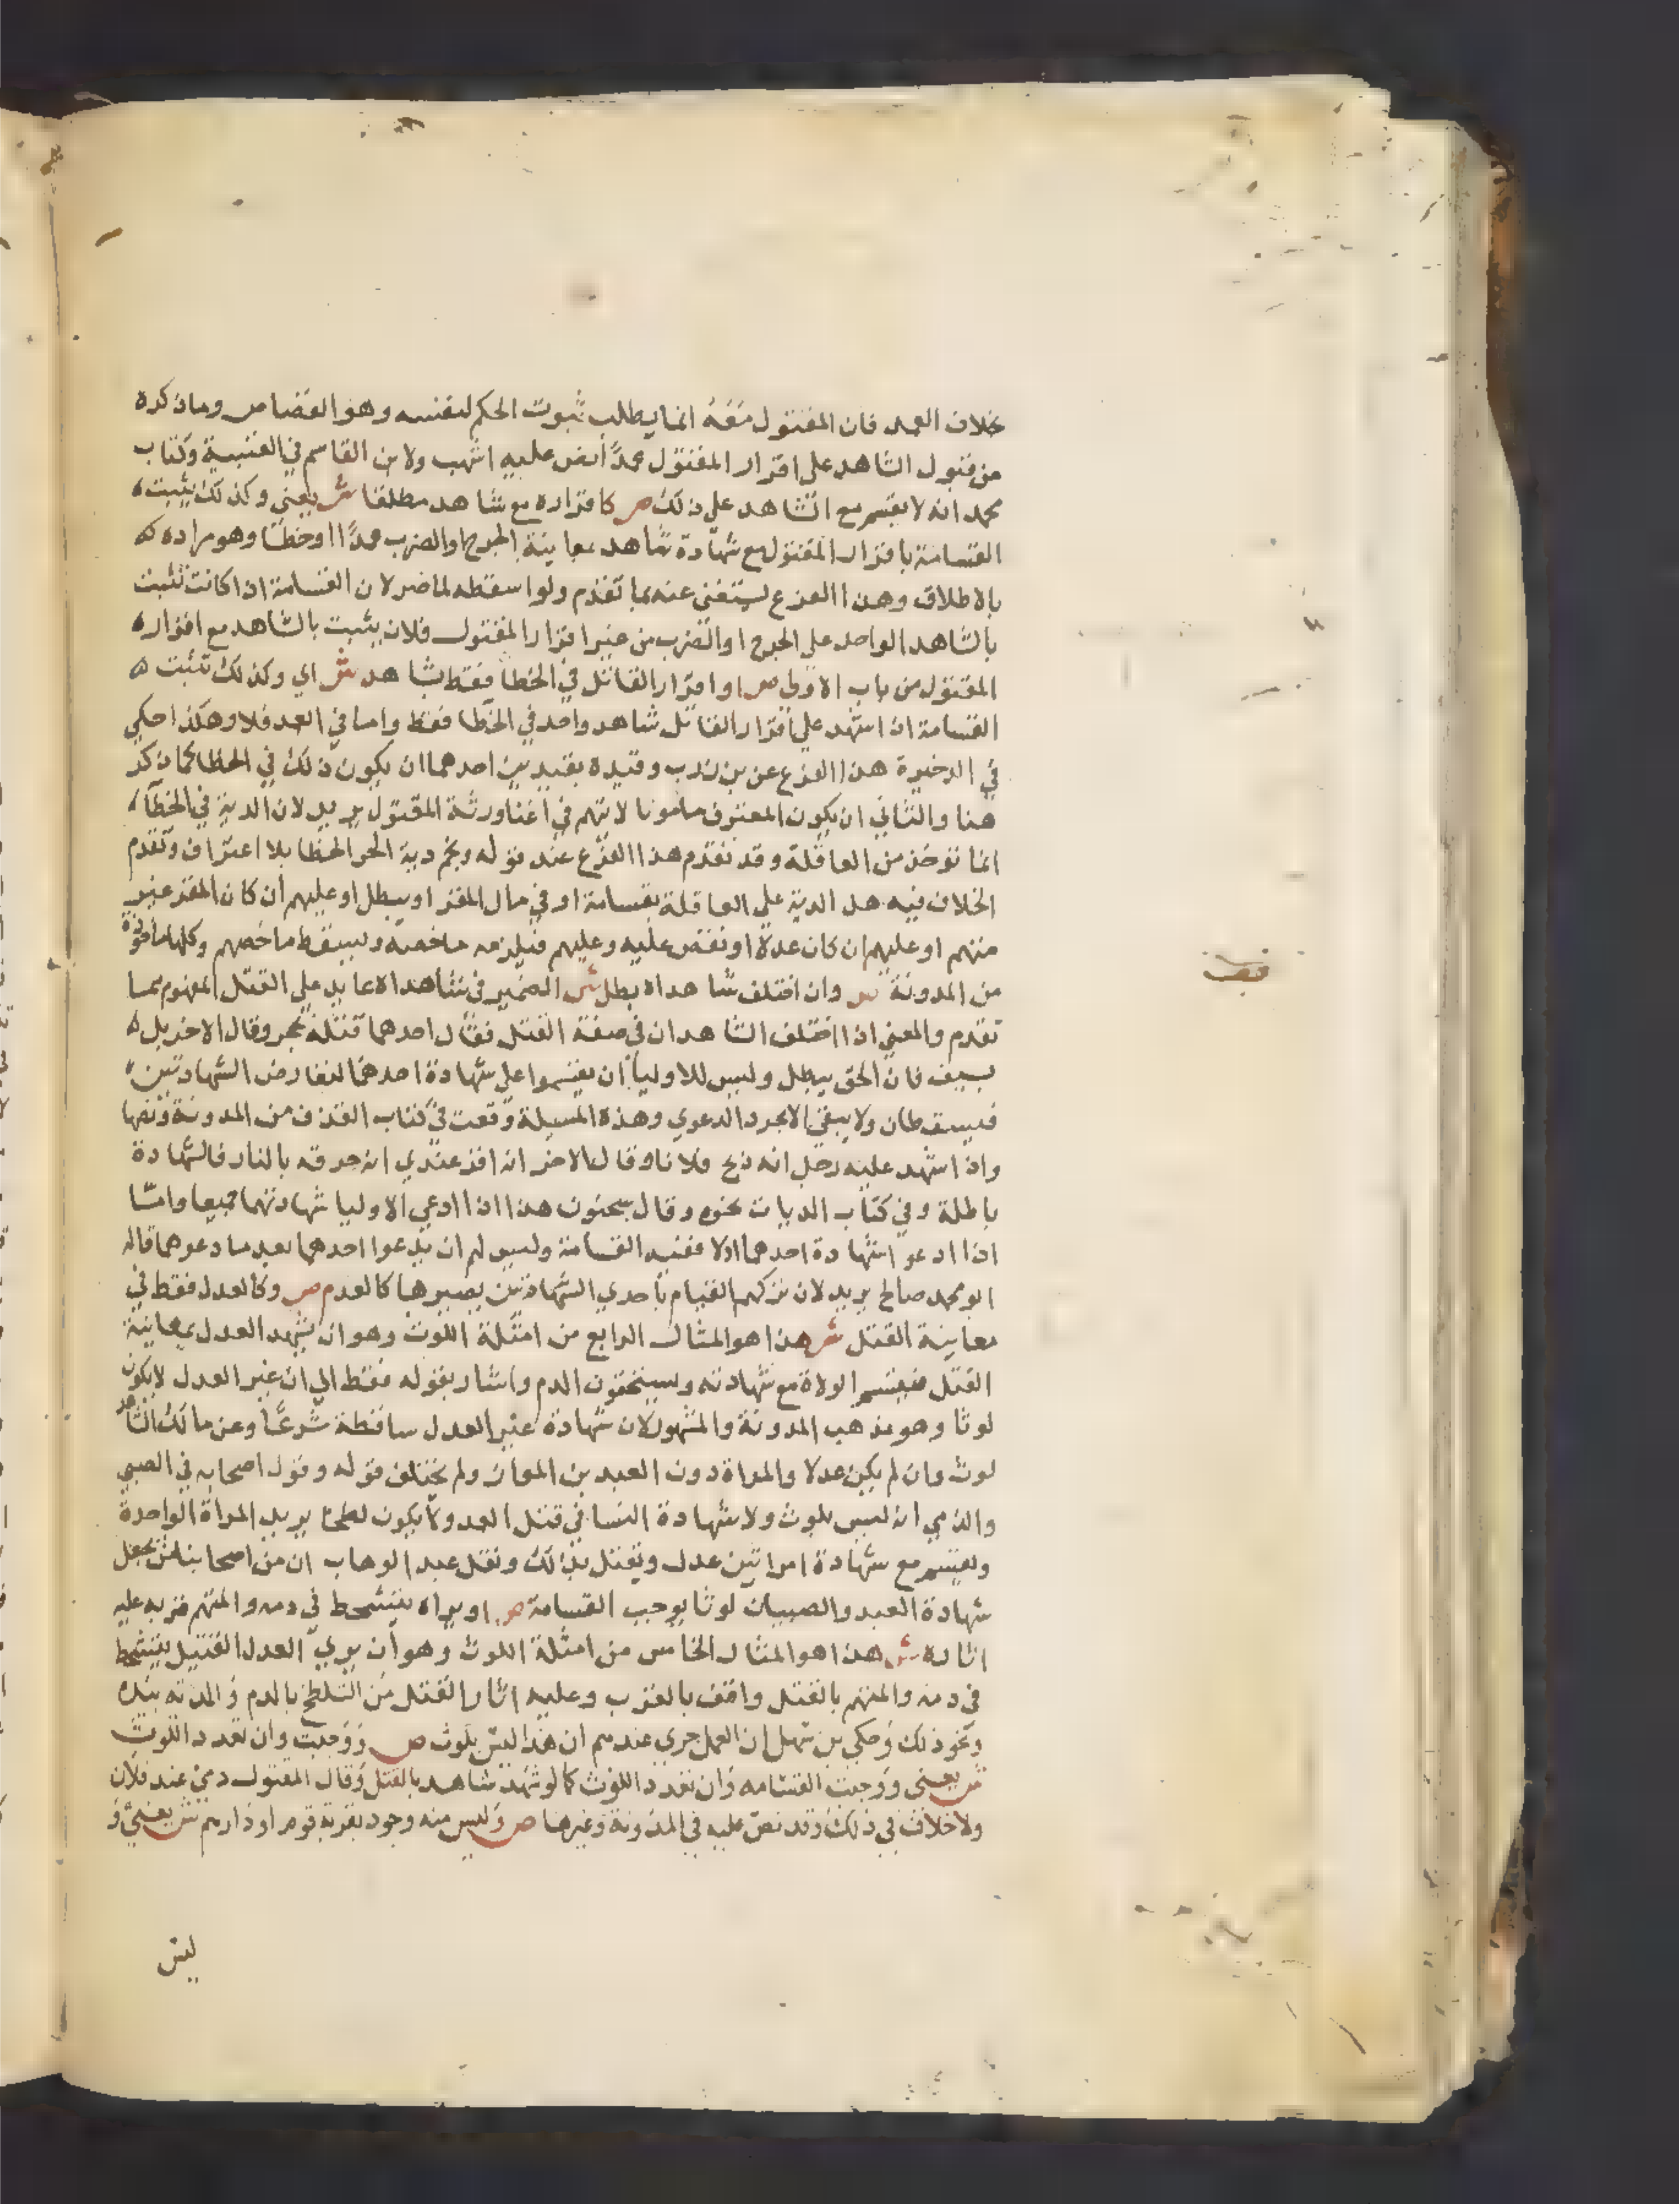 بخلاف العمد فان المقتول معه انما يطلب ثبوت الحكم لنفسه وهو القصاص وما ذكره
من قبول الشاهد على اقرار المقتول عمدا نص عليه اشهب ولابن القاسم في العتبية وكتاب
محمد انه لا يقسم مع الشاهد على ذلك ص كاقراره مع شاهد مطلقا ش يعني وكذلك يثبت
القسامة باقرار المقتول مع شهادة شاهد بمعاينة الجرح او الضرب عمدا او خطا وهو مراده
بالاطلاق وهذا الفرع يستغنى عنه بما تقدم ولو اسقطه لما ضر لان القسامة اذا كانت تثبت
بالشاهد الواحد على الجرح او الضرب من غير اقرار المقتول فلان يثبت بالشاهد مع اقرار
المقتول من باب الاولى ص او اقرار القاتل في الخطا فقط بشاهد ش اي وكذلك تثبت
القسامة اذا شهد على اقرار القاتل شاهد واحد في الخطا فقط واما في العمد فلا وهكذا حكى
في الدخيرة هذا الفرع عن بن وقيده بقيدين احدهما ان يكون ذلك في الخطا كما ذكر
هنا والثاني ان يكون المعترف مامونا لا يتهم في اغنا ورثة المقتول يريد لان الدية في الخطا
انما توخذ من العاقلة وقد تقدم هذا الفرع عند قوله ونجم دية الحر الخطا بلا اعتراف وتقدم
الخلاف فيه هل الدية على العاقلة بقسامة او في مال المقر او يبطل او عليهم ان كان المقر غير
متهم او عليهم ان كان عدلا او تفض عليه وعليهم فيلزمه ما خصه ويسقط ما خصهم وكلها ماخوذة
من المدونة ص وان اختلف شاهداه بطل ش الضمير في شاهداه عايد على القتل المفهوم مما
تقدم والمعنى اذا اختلف الشاهدان في صفة القتل فقال احدهما قتله بحجر وقال الاخر بل
بسيف فان الحق يبطل وليس للاوليا ان يقسموا على شهادة احدهما لتعارض الشهادتين
فيسقطان ولا يبقى الا مجرد الدعوي وهذه المسيلة وقعت في كتاب القذف من المدونة ونصها
واذا شهد عليه رجل انه ذبح فلانا وقال الاخر انه اقر عندي انه حرقه بالنار فالشهادة
باطلة وفي كتاب الديات نحوه وقال سحنون هذا اذا ادعى الاوليا شهادتهما جميعا واما
اذا ادعو اشهادة احدهما اولا ففيه القسامة وليس لهم ان يدعوا احدهما بعد ما دعوهما قاله
ابو محمد صالح يريد لان تركهم القيام باحدي الشهادتين يصيرها كالعدم ص وكالعدل فقط في
معاينة القتل ش هذا هو المثال الرابع من امثلة اللوث وهو ان يشهد العدل بمعاينة
القتل فيقسم الولاة مع شهادته ويستحقون الدم واشار بقوله فقط الى ان غير العدل لا يكون
لوثا وهو مذهب المدونة والمشهور لان شهادة غير العدل ساقطة شرعا وعن مالك الشاهد
لوث وان لم يكن عدلا والمراة دون العبد بن المواز ولم يختلف قوله وقول اصحابه في الصبي
والذمي انه ليس بلوث ولا شهادة النسا في قتل العمد ولا يكون يريد المراة الواحدة
ويقسم مع شهادة امراتين عدل ويقتل بذلك ونقل عبد الوهاب ان من اصحابنا من يجعل
شهادة العبد والصبيان لوثا يوجب القسامة ص او يراه يتشحط في دمه والمتهم قربه عليه
اثاره ش هذا هو المثال الخامس من امثلة اللوث وهو ان يري العدل القتيل يتشحط
في دمه والمتهم بالقتل واقف بالقرب وعليه اثار القتل من التلطخ بالدم والمدية بيده
ونحو ذلك وحكى بن سهل ان العمل جري عندهم ان هذا ليس بلوث ص ووجبت وان تعدد اللوث
ش يعني ووجبت القسامه وان تعدد اللوث كما لو شهد شاهد بالقتل وقال المقتول دمي عند فلان
ولا خلاف في ذلك وقد نص عليه في المدونة وغيرها ص وليس منه وجود بقرية قوم او دارهم ش يعني و
ليس
قف